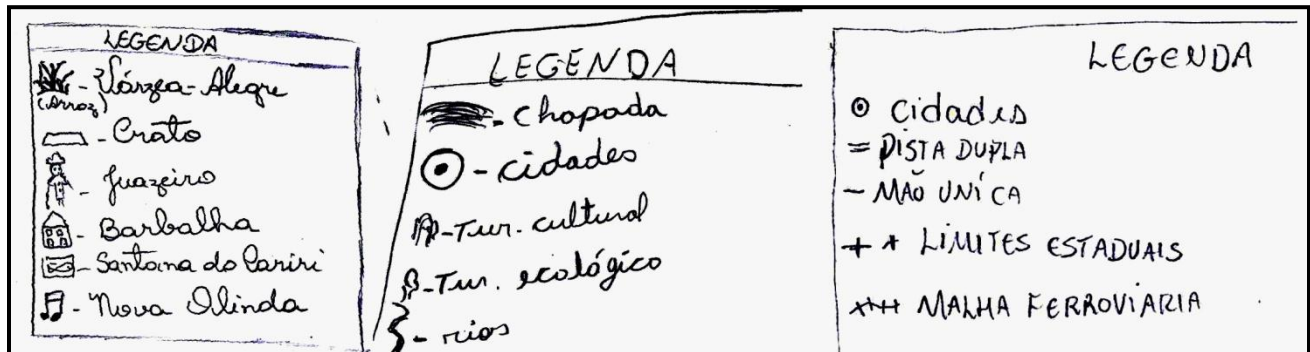 LEGENDA
- Várzea-Alegre
(Arroz)
- Crato
- Juazeiro
- Barbalha
- Santana do Cariri
- Nova Olinda
LEGENDA
- Chapada
- cidades
- Tur. cultural
- Tur. ecológico
- rios
LEGENDA
cidades
= PISTA DUPLA
- MÃO UNÍCA
+ + LIMITES ESTADUAIS
+++ MALHA FERROVIARIA